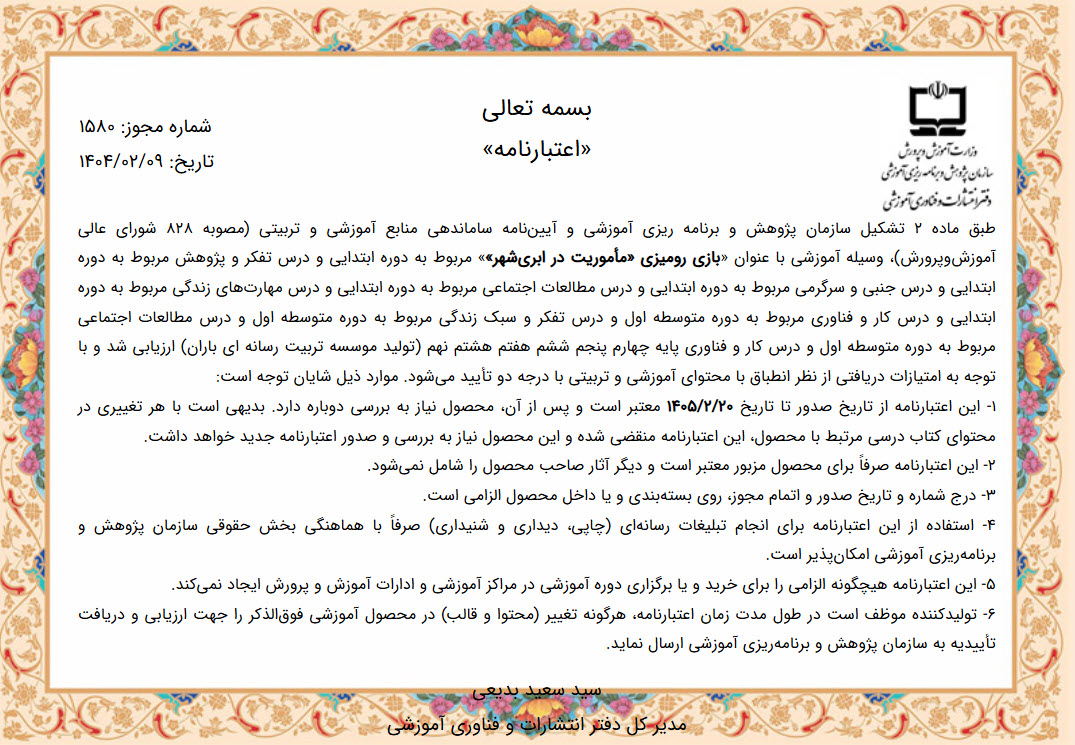 بسمه تعالی
«اعتبارنامه»
شماره مجوز: ۱۵۸۰
تاریخ: ۱۴۰۴/۰۲/۰۹
وزارت آموزش و پرورش
سازمان پژوهش و برنامه ریزی آموزشی
دفتر انتشارات و فناوری آموزشی
طبق ماده ۲ تشکیل سازمان پژوهش و برنامه ریزی آموزشی و آیین‌نامه ساماندهی منابع آموزشی و تربیتی (مصوبه ۸۲۸ شورای عالی
آموزش‌وپرورش)، وسیله آموزشی با عنوان «بازی رومیزی «مأموریت در ابری‌شهر»» مربوط به دوره ابتدایی و درس تفکر و پژوهش مربوط به دوره
ابتدایی و درس جنبی و سرگرمی مربوط به دوره ابتدایی و درس مطالعات اجتماعی مربوط به دوره ابتدایی و درس مهارت‌های زندگی مربوط به دوره
ابتدایی و درس کار و فناوری مربوط به دوره متوسطه اول و درس تفکر و سبک زندگی مربوط به دوره متوسطه اول و درس مطالعات اجتماعی
مربوط به دوره متوسطه اول و درس کار و فناوری پایه چهارم پنجم ششم هفتم هشتم نهم (تولید موسسه تربیت رسانه ای باران) ارزیابی شد و با
توجه به امتیازات دریافتی از نظر انطباق با محتوای آموزشی و تربیتی با درجه دو تأیید می‌شود. موارد ذیل شایان توجه است:
۱- این اعتبارنامه از تاریخ صدور تا تاریخ ۱۴۰۵/۲/۲۰ معتبر است و پس از آن، محصول نیاز به بررسی دوباره دارد. بدیهی است با هر تغییری در
محتوای کتاب درسی مرتبط با محصول، این اعتبارنامه منقضی شده و این محصول نیاز به بررسی و صدور اعتبارنامه جدید خواهد داشت.
۲- این اعتبارنامه صرفاً برای محصول مزبور معتبر است و دیگر آثار صاحب محصول را شامل نمی‌شود.
۳- درج شماره و تاریخ صدور و اتمام مجوز، روی بسته‌بندی و یا داخل محصول الزامی است.
۴- استفاده از این اعتبارنامه برای انجام تبلیغات رسانه‌ای (چاپی، دیداری و شنیداری) صرفاً با هماهنگی بخش حقوقی سازمان پژوهش و
برنامه‌ریزی آموزشی امکان‌پذیر است.
۵- این اعتبارنامه هیچگونه الزامی را برای خرید و یا برگزاری دوره آموزشی در مراکز آموزشی و ادارات آموزش و پرورش ایجاد نمی‌کند.
۶- تولیدکننده موظف است در طول مدت زمان اعتبارنامه، هرگونه تغییر (محتوا و قالب) در محصول آموزشی فوق‌الذکر را جهت ارزیابی و دریافت
تأییدیه به سازمان پژوهش و برنامه‌ریزی آموزشی ارسال نماید.
سید سعید بدیعی
مدیر کل دفتر انتشارات و فناوری آموزشی